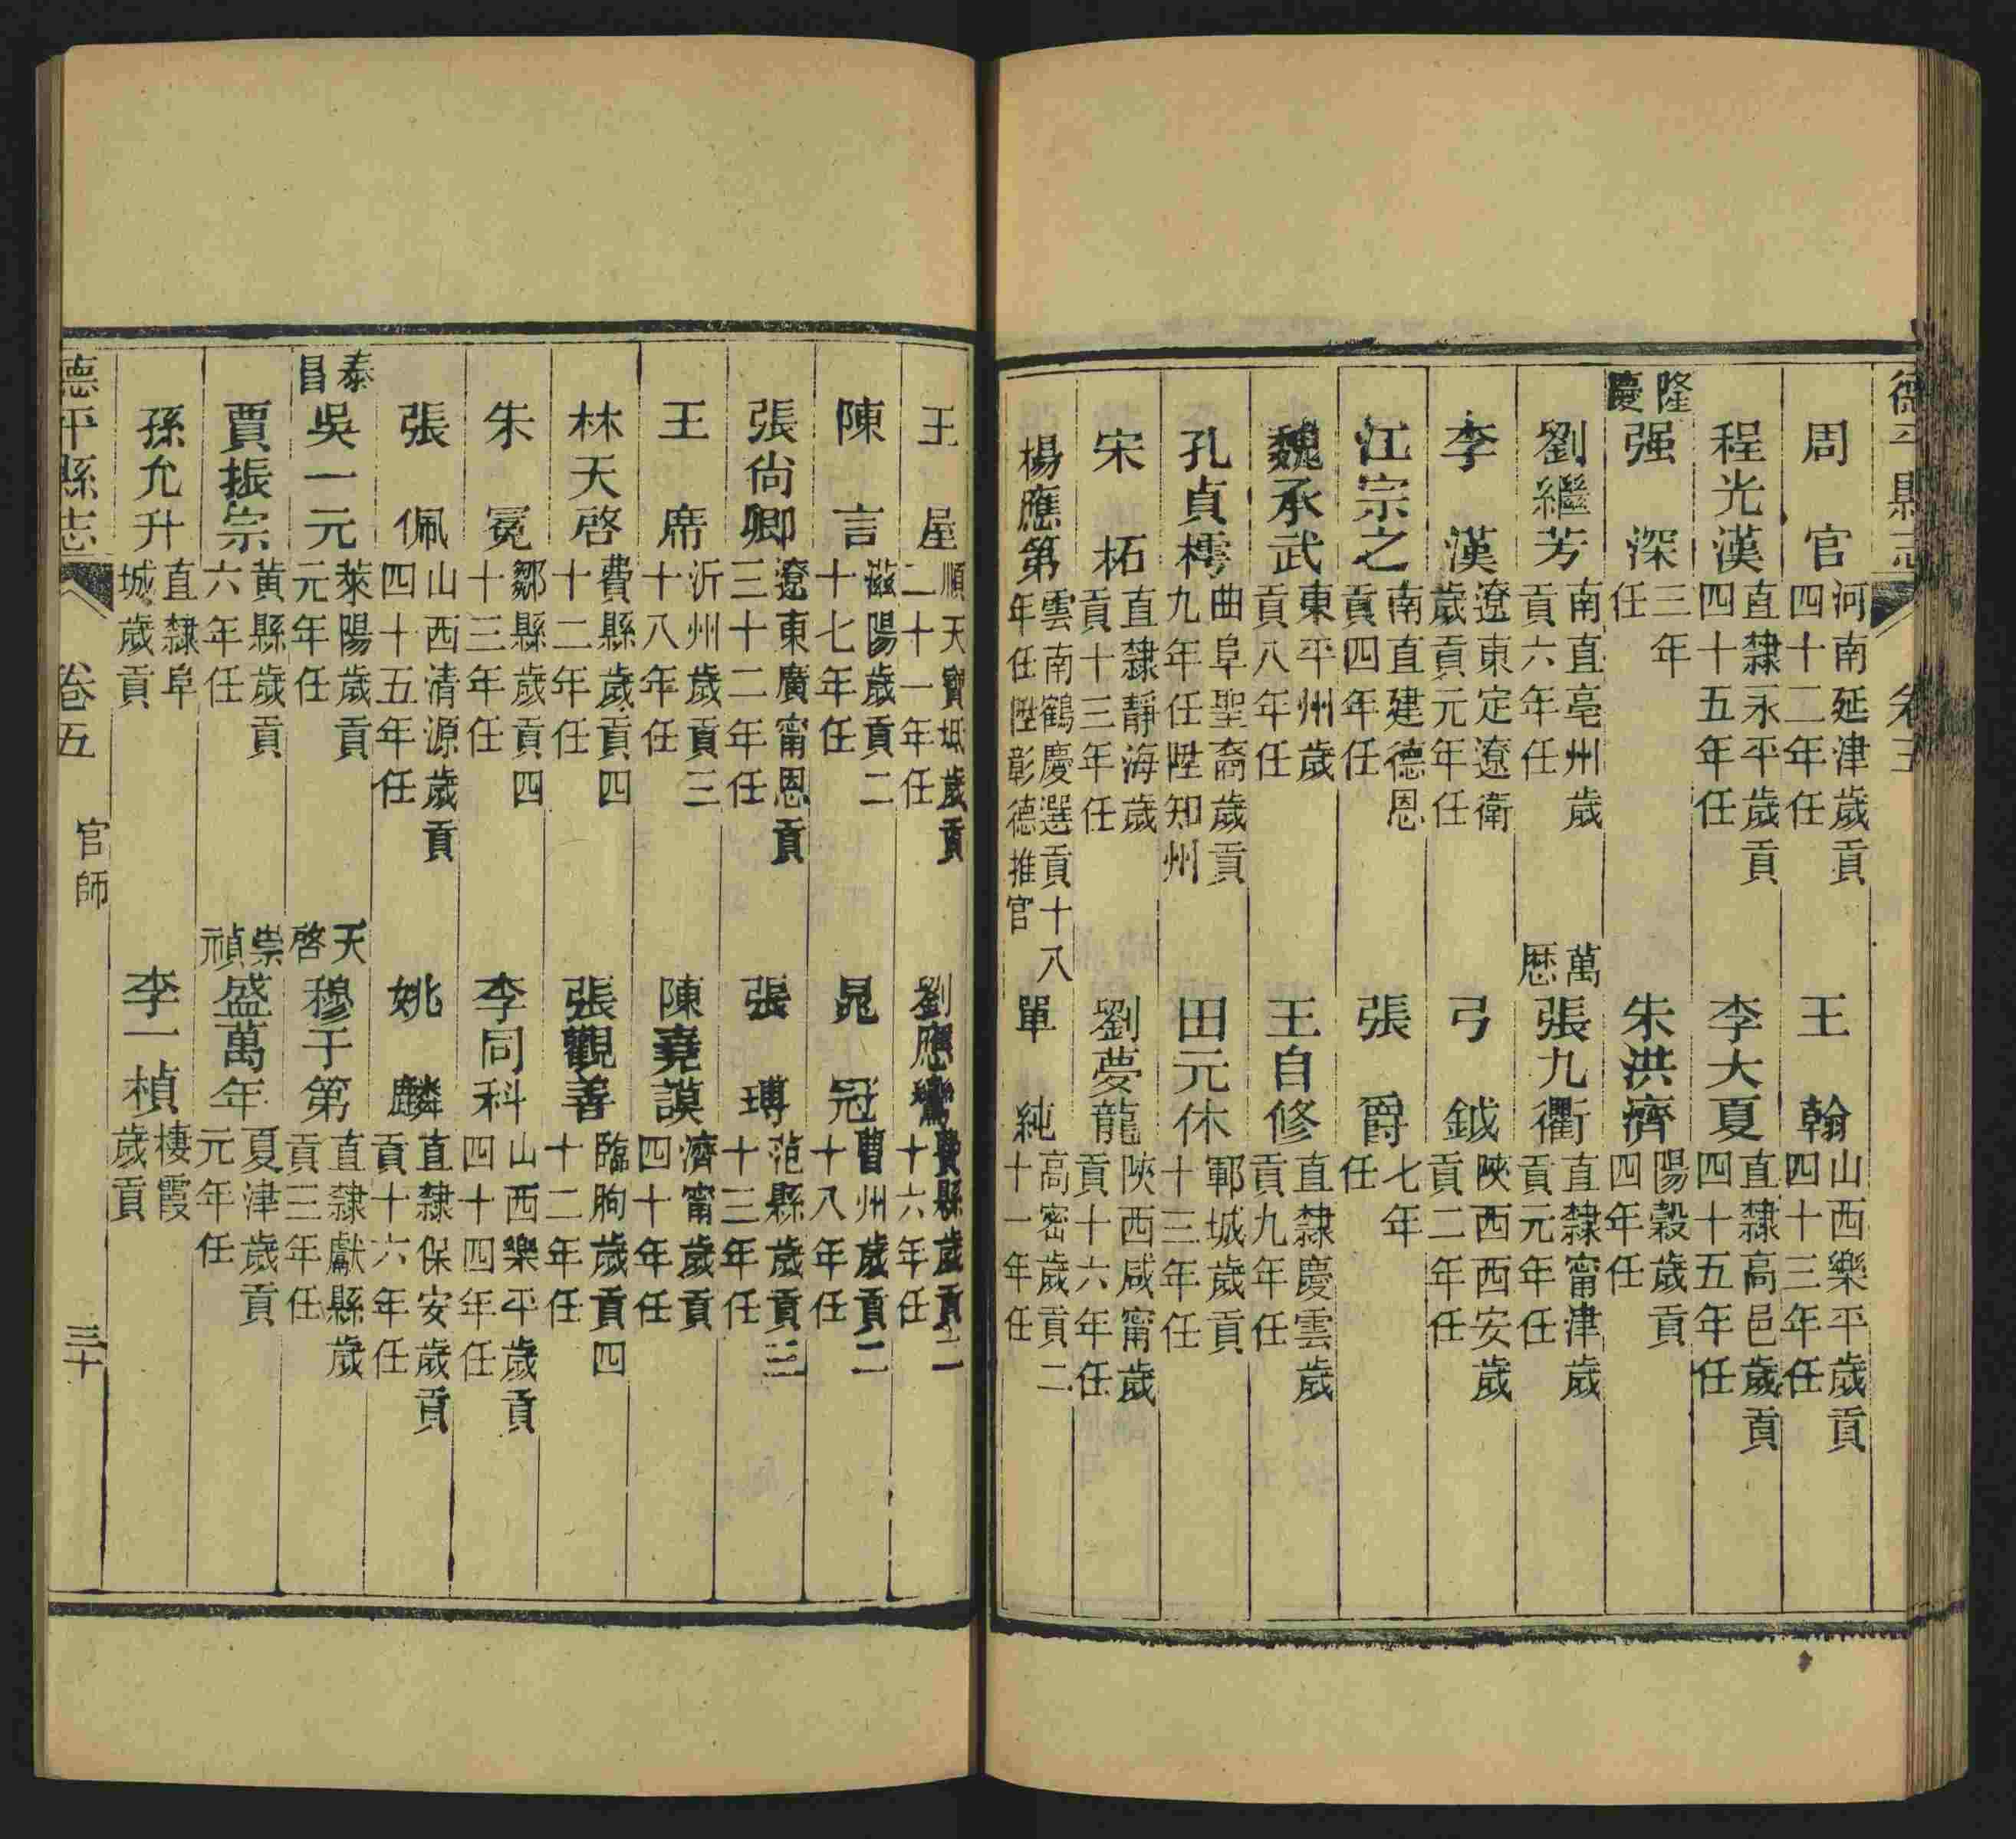 德平縣志 卷五
周官 河南延津歲貢四十二年任 王翰 山西樂平歲貢四十三年任
程光漢 直隸永平歲貢四十五年任 李大夏 直隸高邑歲貢四十五年任
隆慶 强深 三年任 朱洪濟 陽穀歲貢四年任
劉繼芳 南直亳州歲貢六年任 萬歷 張九衢 直隸甯津歲貢元年任
李漢 遼東定遼衛歲貢元年任 弓鉞 陝西西安歲貢二年任
江宗之 南直建德恩貢四年任 張爵 七年任
魏承武 東平州歲貢八年任 王自修 直隸慶雲歲貢九年任
孔貞樗 曲阜聖裔歲貢九年任陞知州 田元休 鄆城歲貢十三年任
宋柘 直隸靜海歲貢十三年任 劉夢龍 陝西咸甯歲貢十六年任
楊應第 雲南鶴慶選貢十八年任陞彰德推官 單純 高密歲貢二十一年任
王屋 順天寶坻歲貢二十一年任 劉應鸞 費縣歲貢二十六年任
陳言 滋陽歲貢二十七年任 晁冠 曹州歲貢二十八年任
張尙卿 遼東廣甯恩貢三十二年任 張瑼 范縣歲貢三十三年任
王席 沂州歲貢三十八年任 陳堯謨 濟甯歲貢四十年任
林天啓 費縣歲貢四十二年任 張觀善 臨朐歲貢四十二年任
朱冕 鄒縣歲貢四十三年任 李同科 山西樂平歲貢四十四年任
張佩 山西清源歲貢四十五年任 姚麟 直隸保安歲貢四十六年任
泰昌 吳一元 萊陽歲貢元年任 天啓 穆于第 直隸獻縣歲貢三年任
賈振宗 黃縣歲貢六年任 崇禎 盛萬年 夏津歲貢元年任
孫允升 直隸阜城歲貢 李一楨 棲霞歲貢
德平縣志 卷五 官師 三十